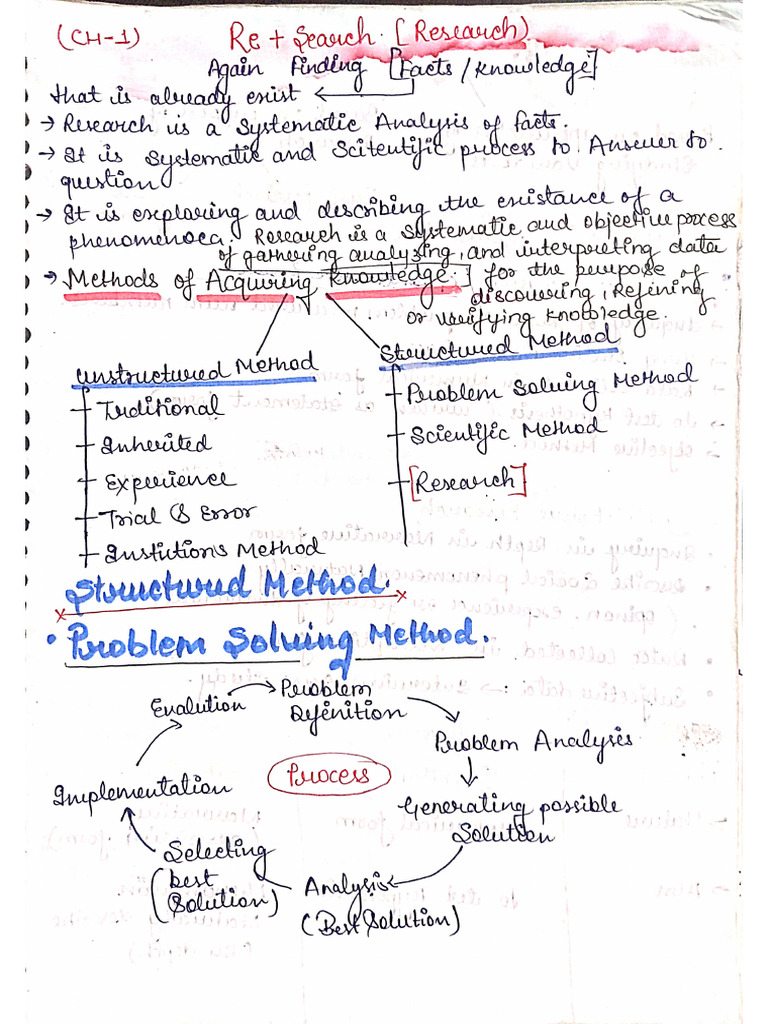 (CH-1) Re + Search. [Research]
Again Finding [Facts / Knowledge]
that is already exist ←
→ Research is a Systematic Analysis of facts.
→ It is systematic and Scitentific process to Answer to.
question
→ It is exploring and describing the existance of a
phenomenoca. Research is a systematic and objective process
of gathering analyzing, and interpreting data
→ Methods of Acquiring Knowledge. ] for the purpose of
discovering, Refining
or verifying Knowledge.
Unstructured Method
Structured Method
Traditional
Inherited
Experience
Trial & Error
Instiutions Method
Problem Solving Method
Scientific Method
[Research]
Structured Method.
• Problem Solving Method.
Evalution → Problem
Defenition
Problem Analysis
Generating possible
Solution
Process
Implementation
Selecting
(best
Solution)
Analysis
(Best Solution)